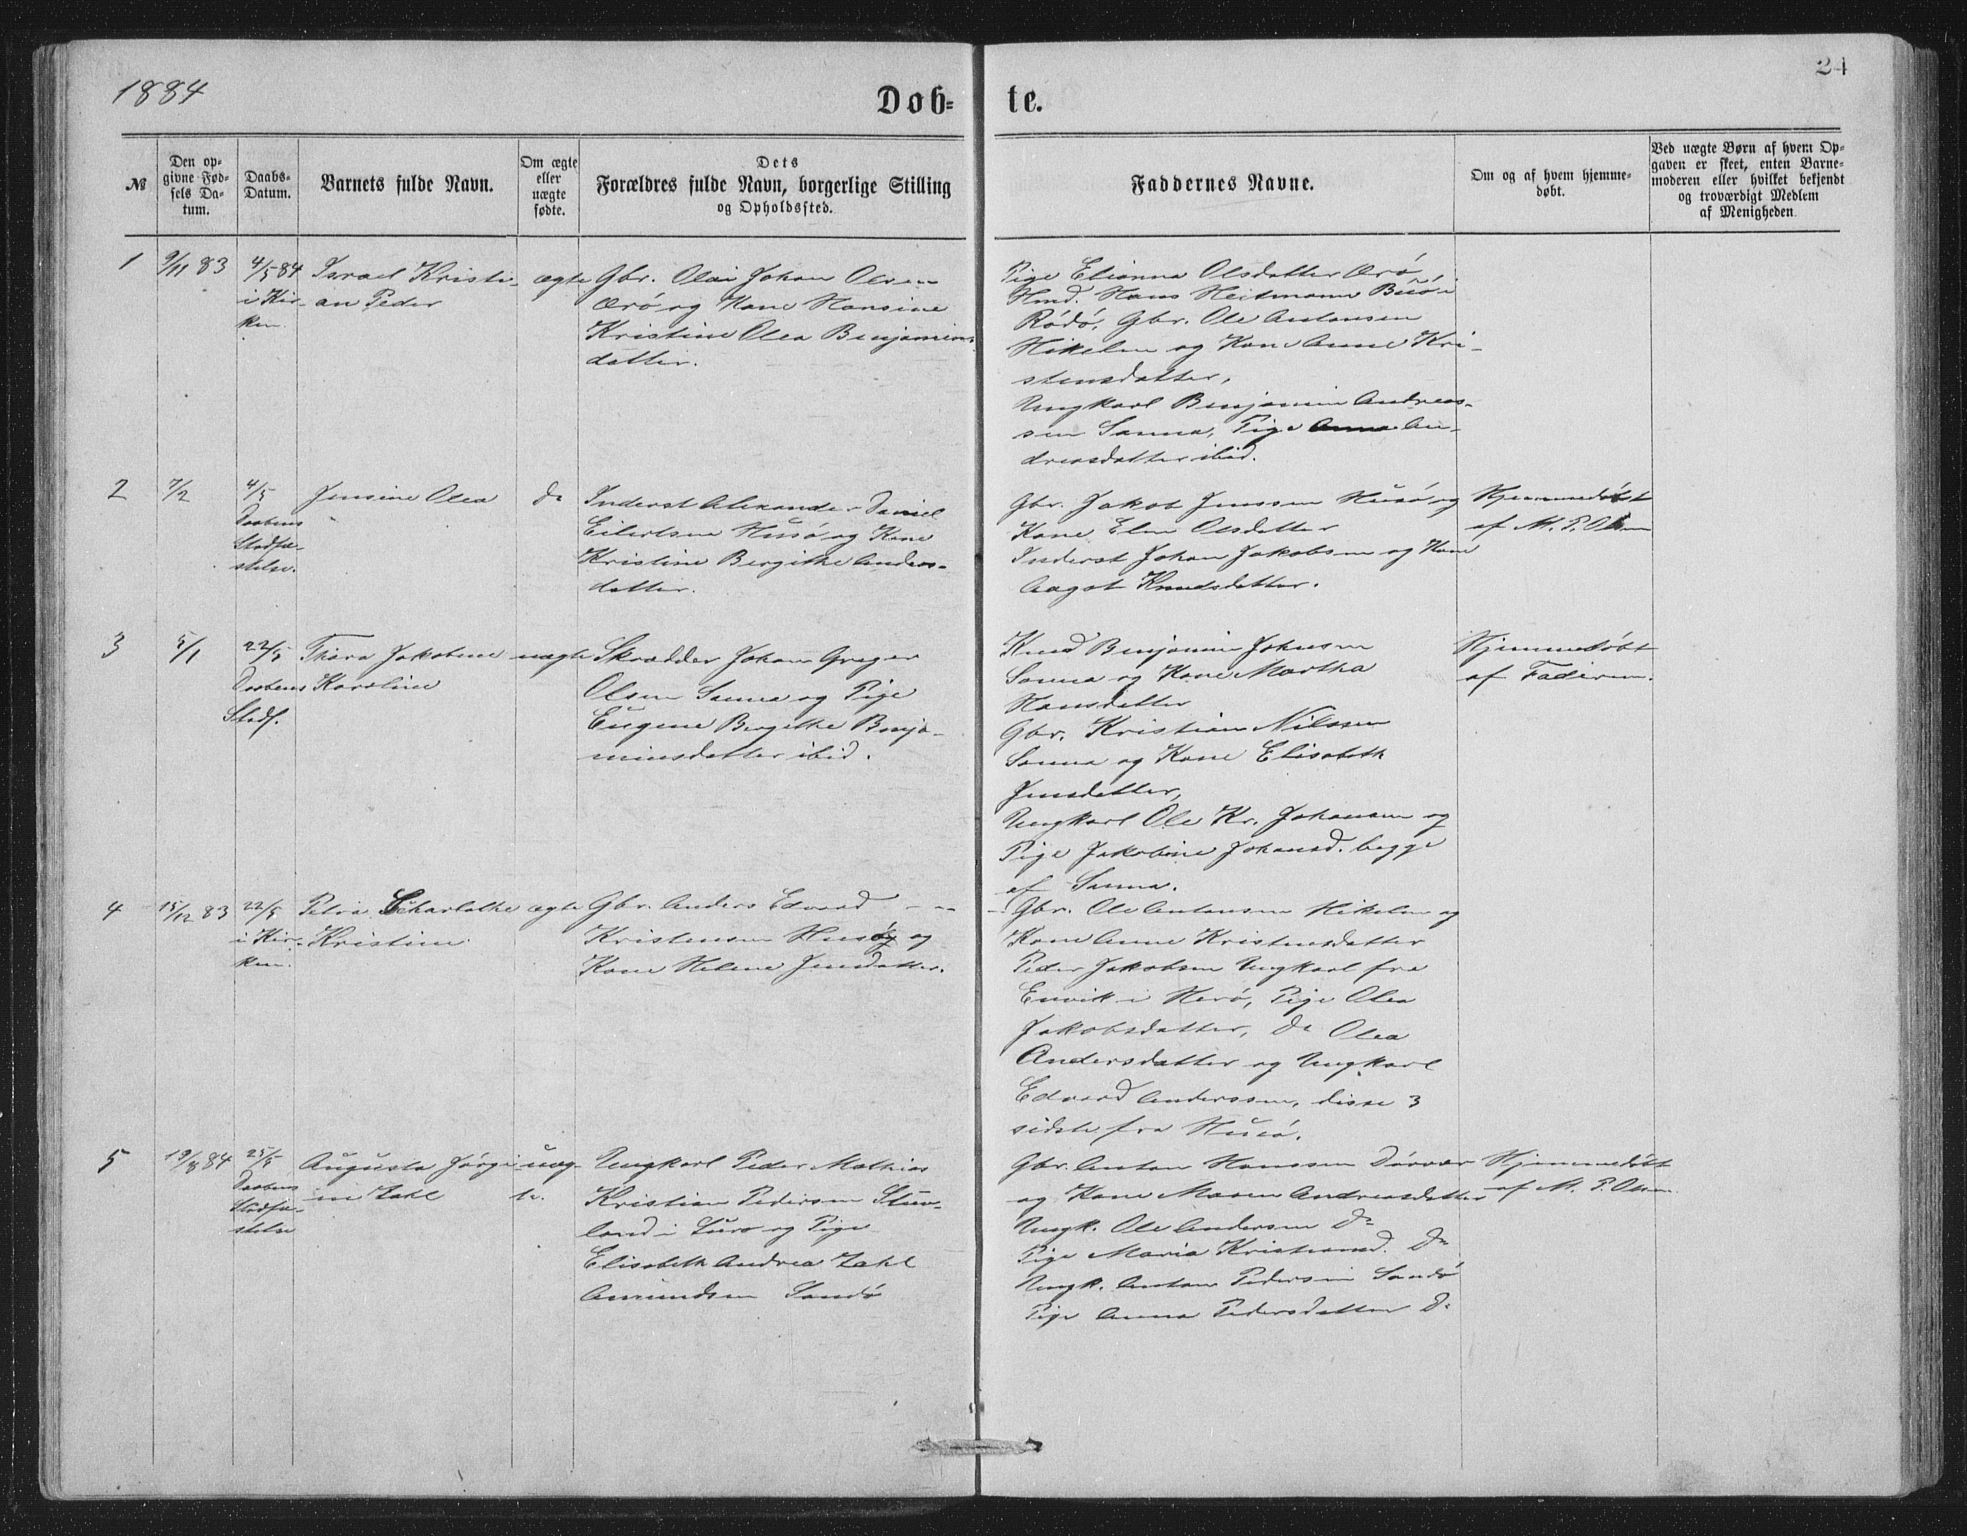 1884
24
Døb-
te.
№
Den op-
givne Fød-
sels Da-
tum.
Daabs-
Datum.
Barnets fulde Navn.
Om ægte
eller
uægte
fødte.
Dets
Forældres fulde Navn, borgerlige Stilling
og Opholdssted.
Faddernes Navne.
Om og af hvem hjemme-
døbt.
Ved uægte Børn af hvem Op-
gaven er skeet, enten Barne-
moderen eller hvilket bekjendt
og troværdigt Medlem
af Menigheden.
1
9/11 83
4/5 84
i Kir-
ken.
Israel Kristi-
an Peder
ægte
Gbr. Olai Johan Olsen
Ærö og Kone Hansine
Kristine Olea Benjamins-
datter.
Pige Elianna Olsdatter Ærö
Hmd. Hans Heitmann Buö i
Rödö, Gbr. Ole Antonsen
Hikelen og Kone Anne Kri-
stensdatter,
Ungkarl Benjamin Andreas-
sen Sanna, Pige An-
dreasdatter ibid.
2
7/2
4/5
Daabens
Stadfæ-
stelse.
Jensine Olea
do
Inderst Alexander Daniel
Eilertsen Husö og Kone
Kristine Bergithe Anders-
datter.
Gbr. Jakob Jenssen Husö og
Kone Elen Olsdatter
Inderst Johan Jakobsen og Kone
Aagot Knudsdatter.
Hjemmedöbt
af M. P. Olsen
3
5/1
22/5
Daabens
Stadf.
Thora Jakobine
Karoline
uægte
Skrædder Johan Greger
Olsen Sanna og Pige
Eugene Bergithe Benja-
minsdatter ibid.
Knud Benjamin Johnsen
Sanna og Kone Martha
Hansdatter
Gbr. Kristian Nilssen
Sanna og Kone Elisabeth
Jensdatter,
Ungkarl Ole Kr. Johansen og
Pige Jakobine Johansd. begge
af Sanna.
Hjemmedöbt
af Faderen.
4
15/12 83
22/5
i Kir-
ken.
Petra Charlothe
Kristine
ægte
Gbr. Anders Edvard
Kristensen Husö og
Kone Helene Jensdatter.
Gbr. Ole Antonsen Hikelen og
Kone Anne Kristensdatter
Peder Jakobsen Ungkarl fra
i Herö, Pige Olea
Jakobsdatter, do Olea
Andersdatter og Ungkarl
Edvard Anderssen, disse 3
sidste fra Husö.
5
84
25/5
Daabens
Stadfæ-
stelse
Augusta Jörgi-
ne Zahl
uæg-
te.
Ungkarl Peder Mathias
Kristian Pedersen Stuv-
land i Lurö og Pige
Elisabeth Andrea Zahl
Amundsen Sandö
Gbr. Anton Hanssen Dörvær
og Kone Maren Andreasdatter
Ungk. Ole Andersen Do
Pige Maria Kristiansd. Do
Ungk. Anton Pedersen Sandö
Pige Anna Pedersdatter Do
Hjemmedöbt
af M. P. Olsen.